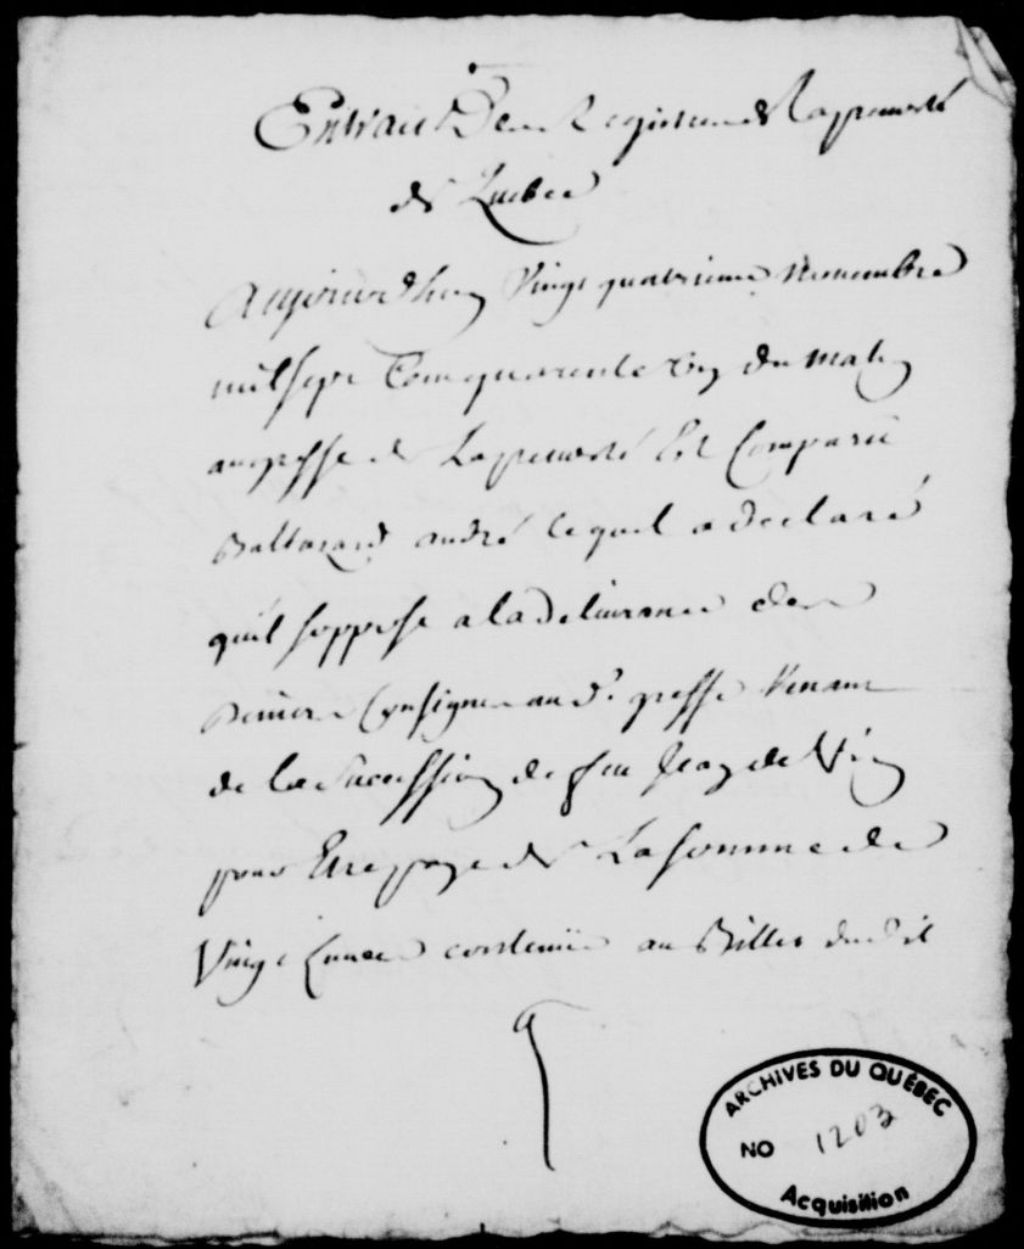 Extrait Des Registres de la prevosté
de Quebec
Aujourdhuy Vingt quatrieme Novembre
mil sept Cent quarente du matin
au greffe de La prevosté Est Comparu
Baltazard andré lequel a declaré
quil soppose a la delivrance des
deniers Consignes au d. greffe Venant
de la succession de feu Jean de
pour Etre payé de La somme de
Vingt Livres contenüe au Billet dudit
ARCHIVES DU QUÉBEC
NO 1203
Acquisition